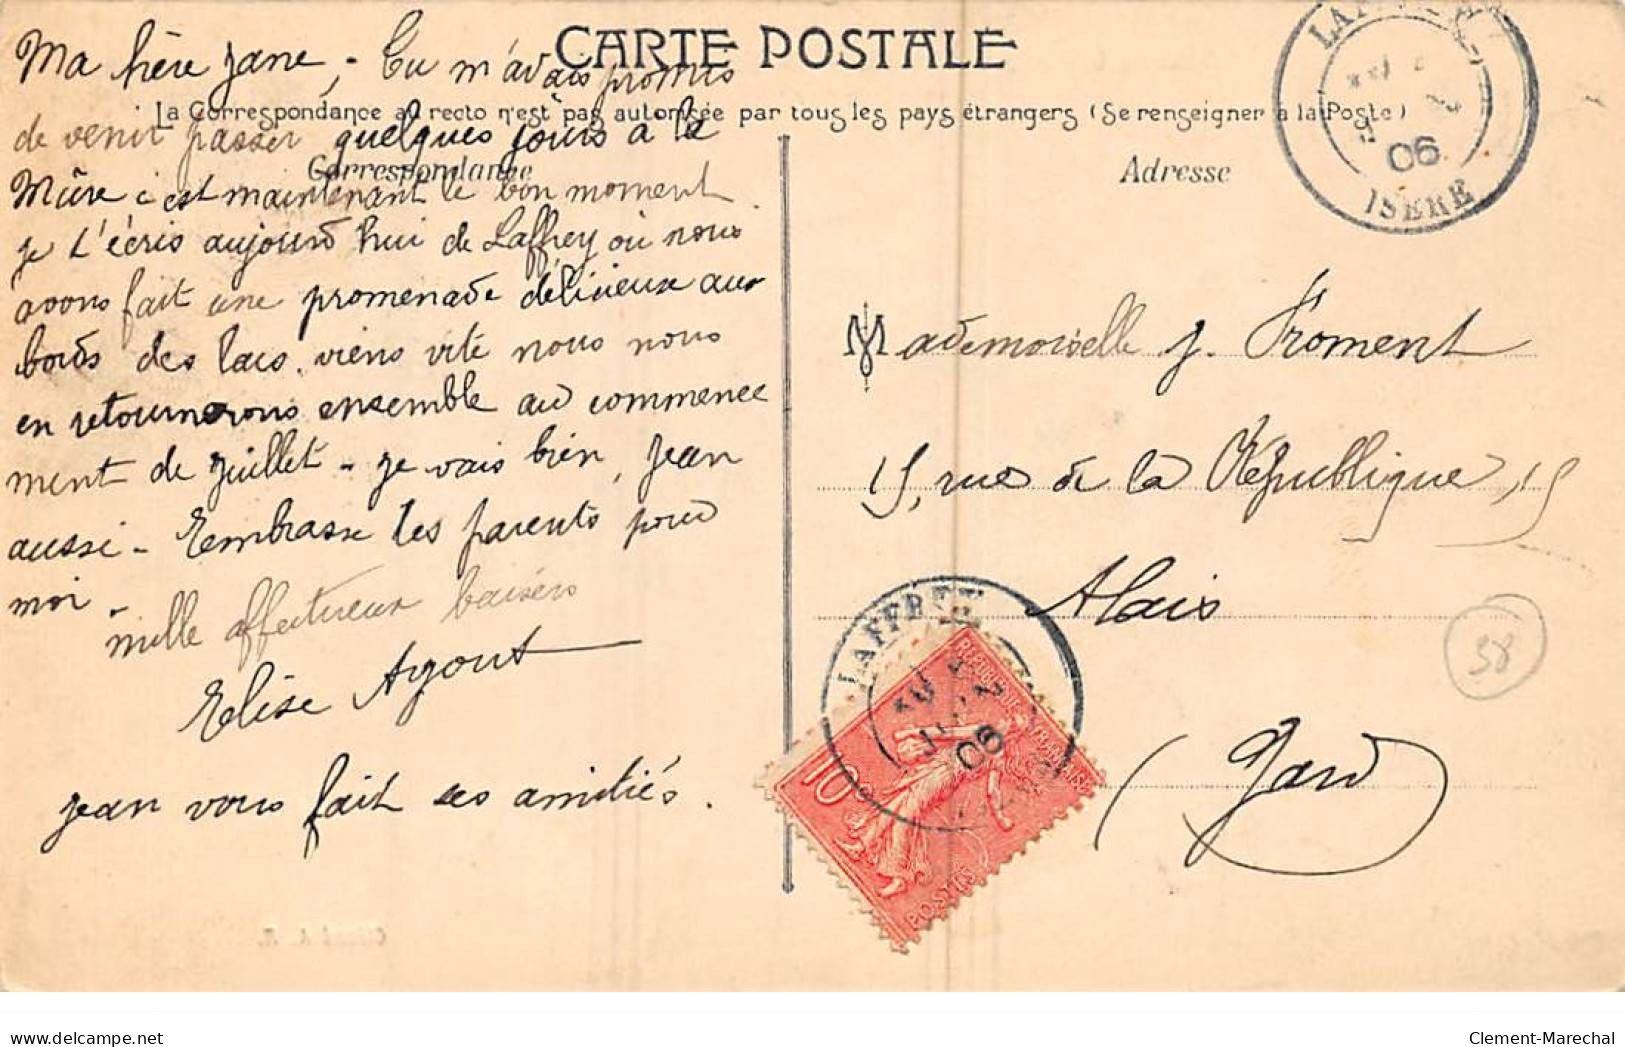 CARTE POSTALE
La Correspondance au recto n'est pas autorisée par tous les pays étrangers (Se renseigner à la Poste)
Correspondance
Adresse
Ma Jane, - Tu m'avais promis
de venir passer quelques jours à la
Mûre c'est maintenant le bon moment
je t'écris aujourd'hui de Laffrey où nous
avons fait une promenade délicieuse aux
bords des lacs. viens vite nous nous
en retournerons ensemble au commence
ment de juillet - je vais bien, Jean
aussi - Embrasse les parents pour
moi -
mille affectueux baisers
Elise Agout
Jean vous fait ses amitiés.
Mademoiselle J. Froment
15, rue de la République, 15
Alais
(Gard)
38
06
ISERE
LAFFREY
06
REPUBLIQUE FRANÇAISE
10
POSTES
delcampe.net
Clement-Marechal